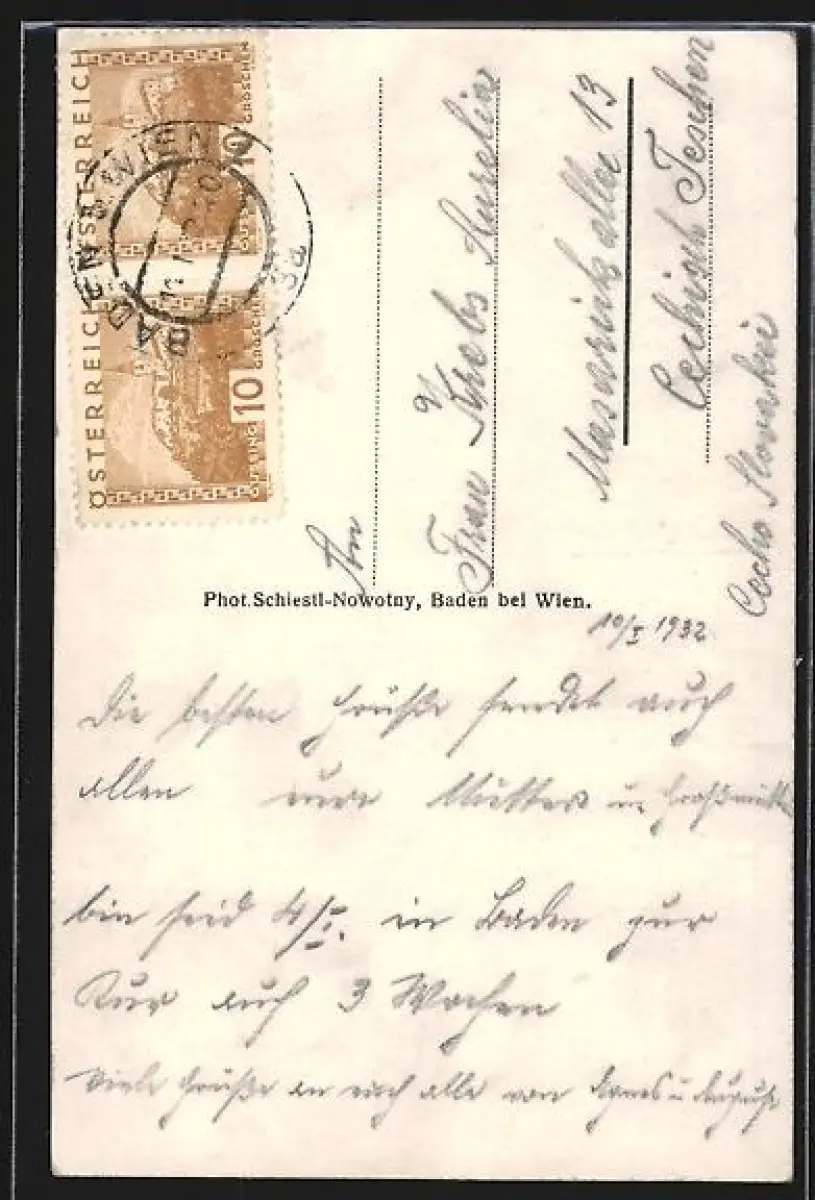 ÖSTERREICH
10 GROSCHEN
GÜSSING
ÖSTERREICH
10 GROSCHEN
GÜSSING
BADEN B. WIEN
An
Frau Krebs Aurelia
Masarikallee 13
Cechisch Teschen
Cecho Slovakei
Phot. Schiestl-Nowotny, Baden bei Wien.
10/I 1932
Die besten Grüße sendet euch
allen eure Mutter u. Großmutter
bin seid 4/I. in Baden zur
Kur auf 3 Wochen
Viele Grüße an euch alle von Agnes u August